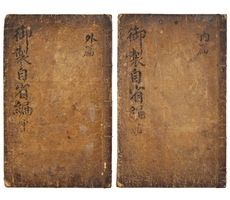 御製自省編
外篇
御製自省編
內篇